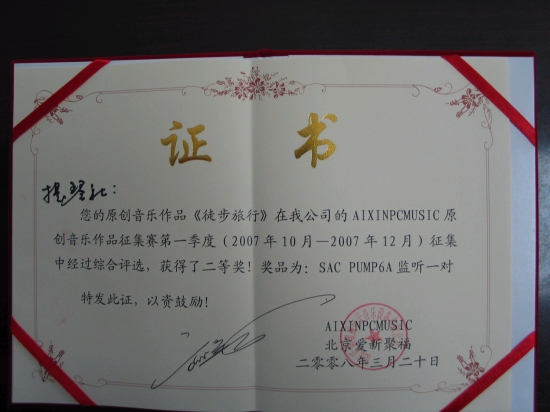 证 书
您的原创音乐作品《徒步旅行》在我公司的 AIXINPCMUSIC 原
创音乐作品征集赛第一季度（2007 年 10 月—2007 年 12 月）征集
中经过综合评选，获得了二等奖！奖品为：SAC PUMP6A 监听一对
特发此证，以资鼓励！
AIXINPCMUSIC
北京爱新聚福
二零零八年三月二十日